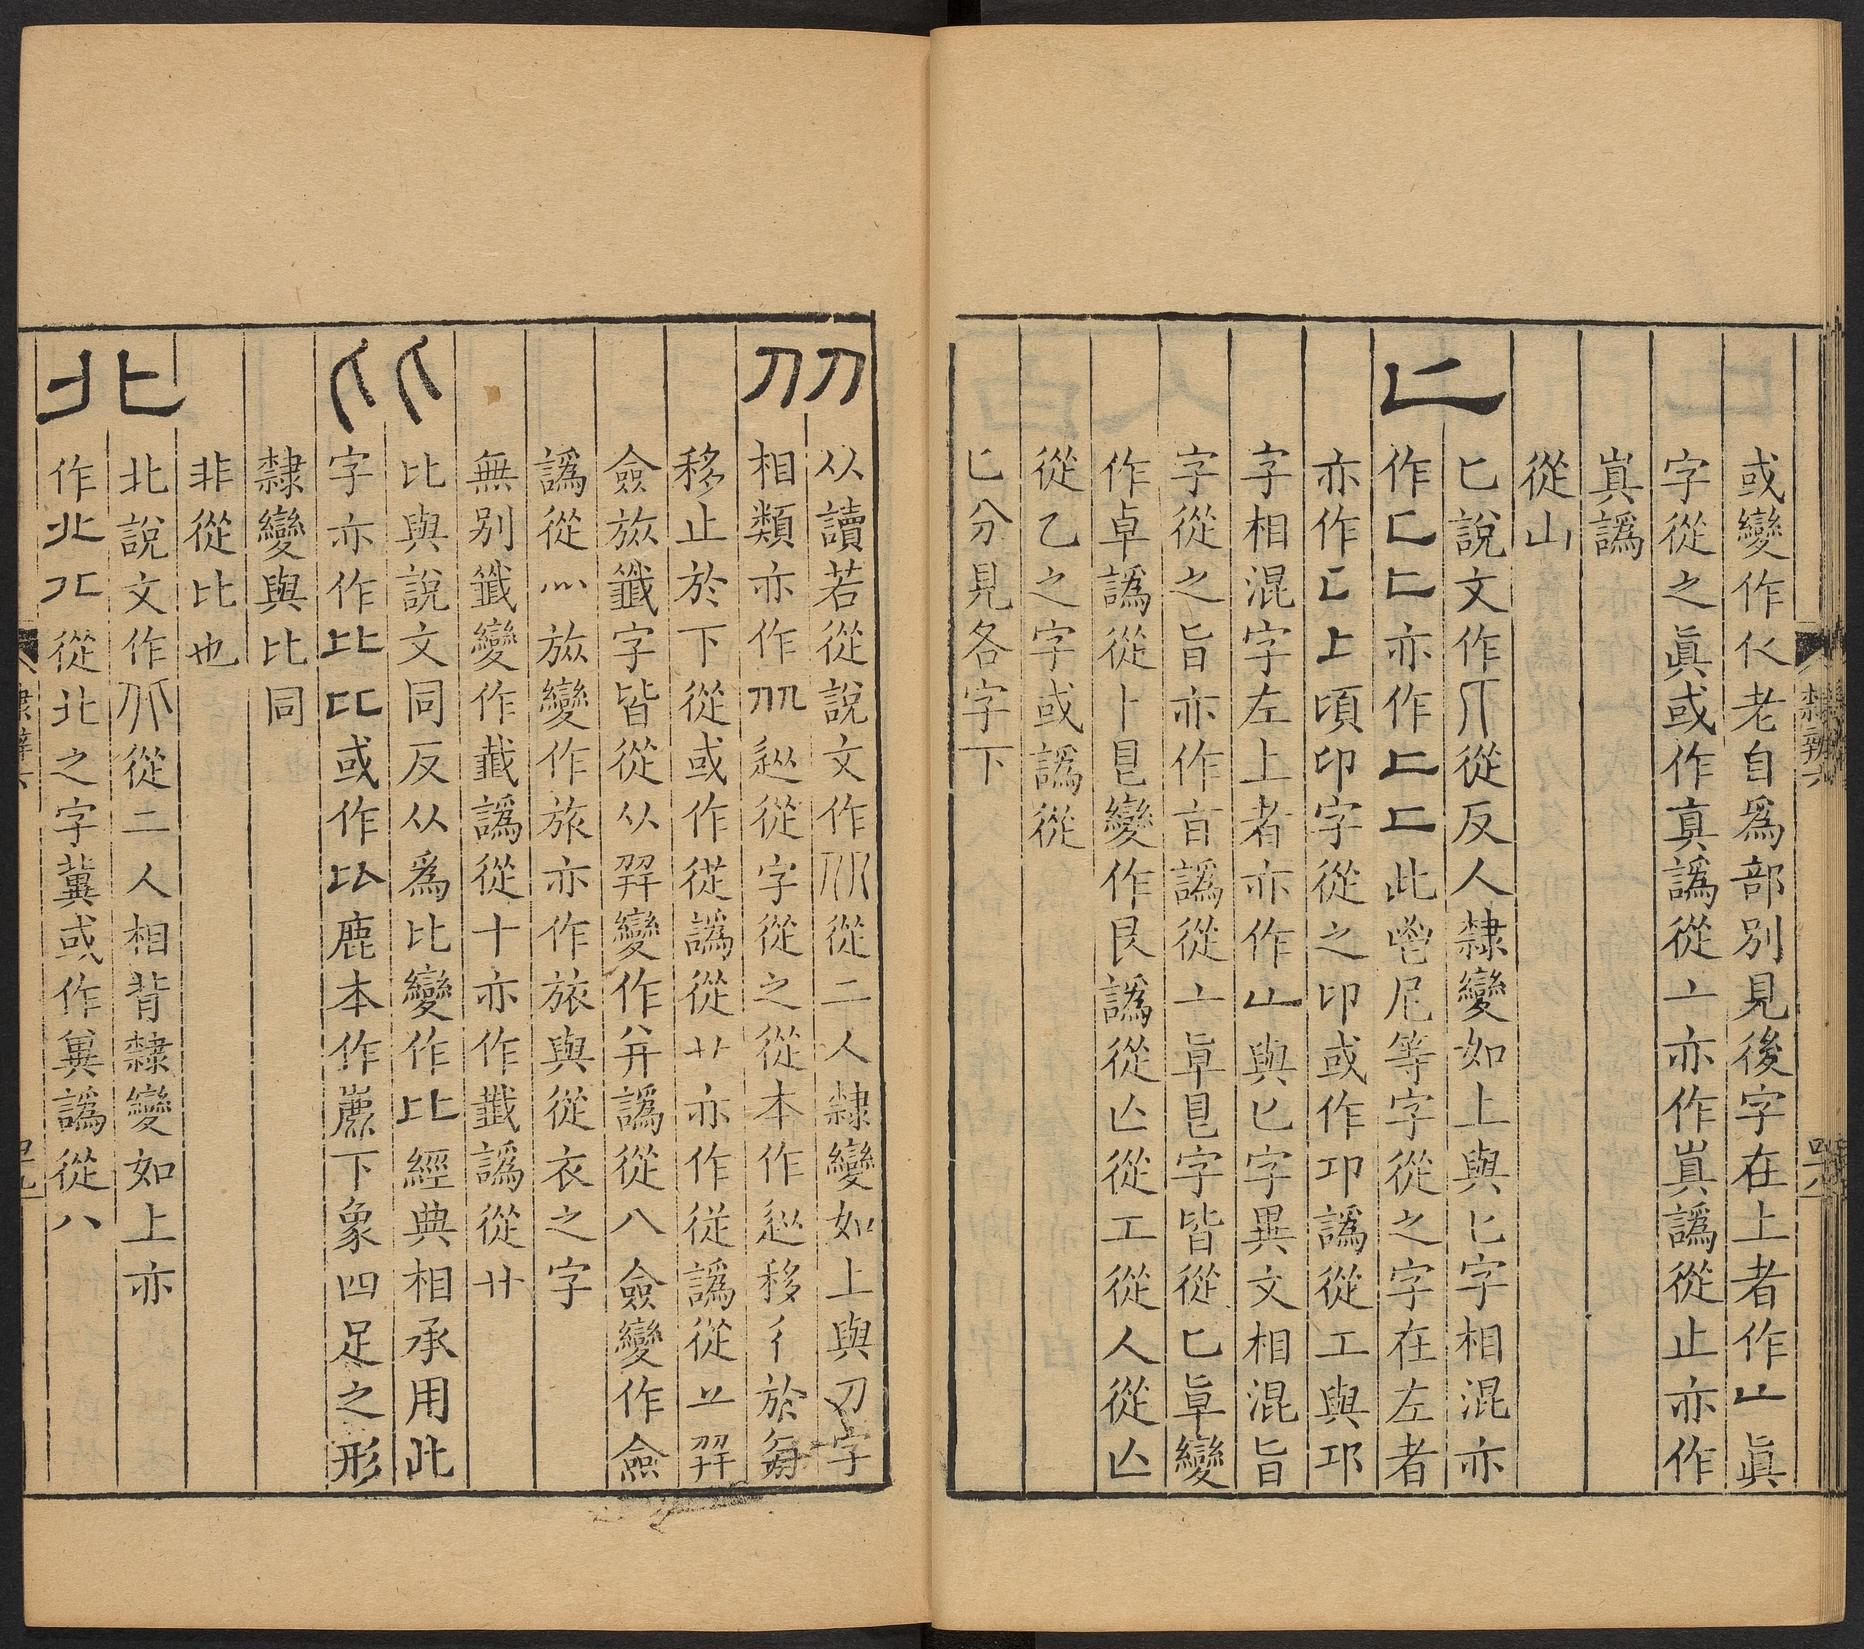 或變作㐅老自爲部別見後字在上者作𠃊眞
字從之眞或作真譌從亠亦作眞譌從止亦作
眞譌
從山
匕
匕說文作從反人隸變如上與匕字相混亦
作匸匕亦作此㫐尼等字從之字在左者
亦作上頃印字從之印或作卭譌從工與邛
字相混字左上者亦作與匕字異文相混旨
字從之旨亦作㫖譌從亠皁皀字皆從匕皁變
作卓譌從卜皀變作艮譌從亾從工從人從亾
從乙之字或譌從
匕分見各字下
从讀若從說文作從二人隸變如上與刀字
相類亦作𨑢從字從之從本作𨑢移彳於匆
移止於下從或作從譌從艹亦作従譌從䒑幵
僉㫃韱字皆從从幵變作幷譌從八僉變作僉
譌從灬㫃變作旅亦作旅與從衣之字
無別韱變作韱譌從十亦作韱譌從卄
比與說文同反从爲比變作比經典相承用此
字亦作比或作鹿本作麃下象四足之形
隸變與比同
非從比也
北
北說文作從二人相背隸變如上亦
作北從北之字冀或作兾譌從八
隸辨六